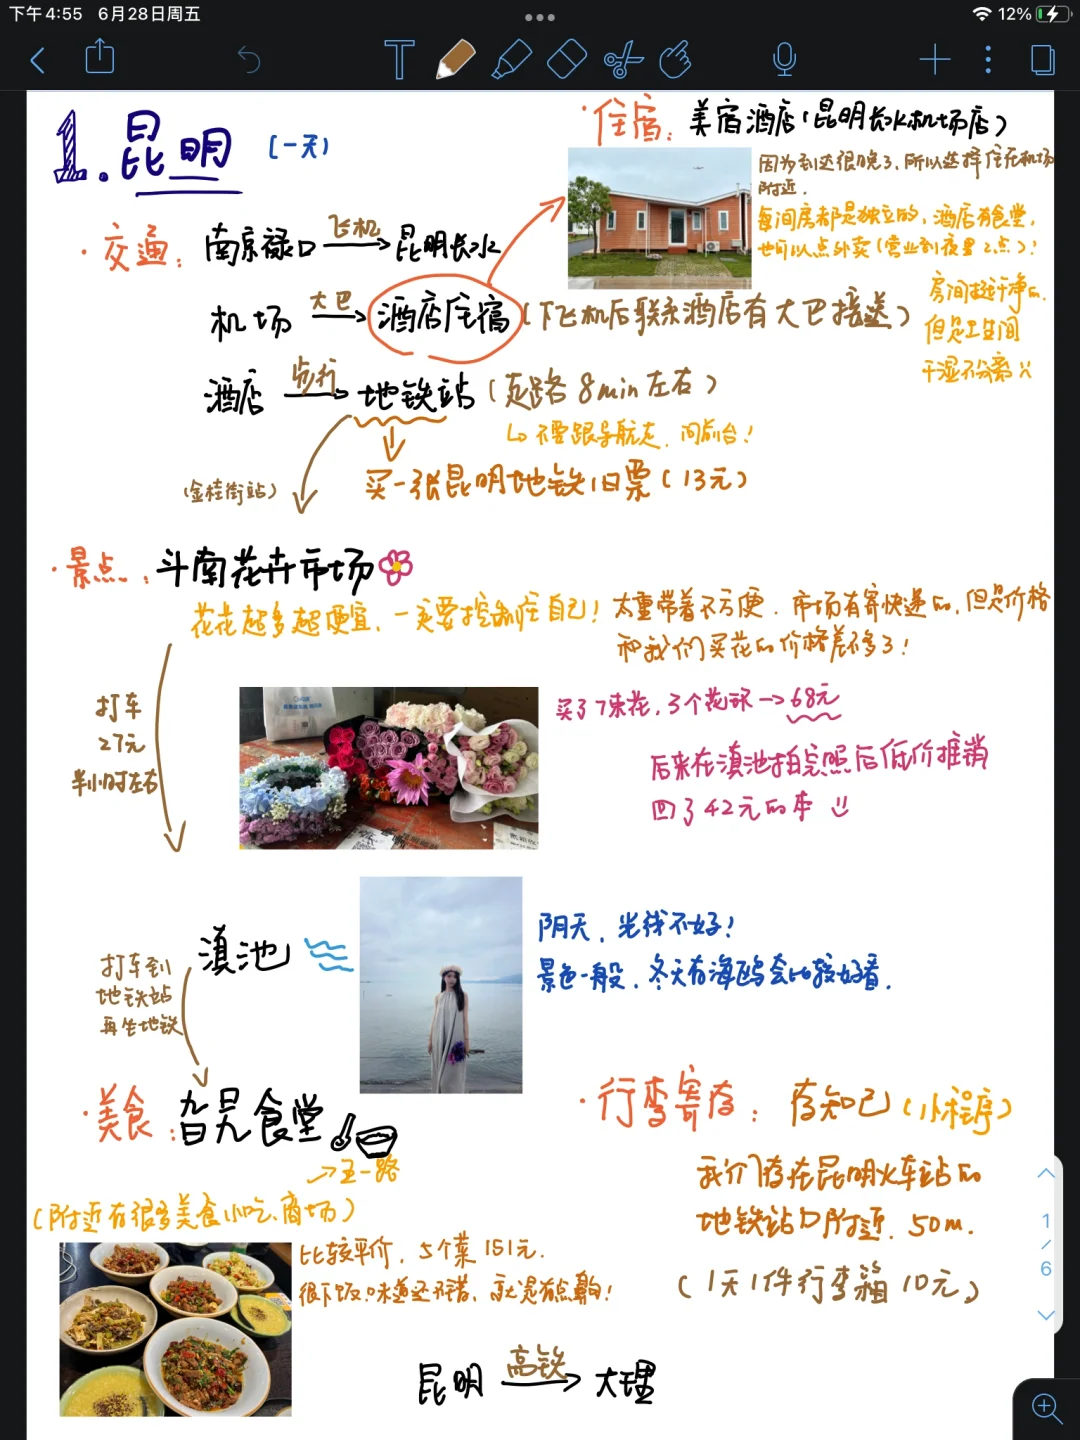 下午4:55 6月28日周五
12%
1.昆明 (一天)
·住宿: 美宿酒店(昆明长水机场店)
因为到达很晚了,所以选择住在机场
附近.
每间房都是独立的,酒店有食堂,
也可以点外卖(营业到夜里2点)!
房间挺干净的,
但是卫生间
干湿不分离
·交通: 南京禄口 飞机 昆明长水
机场 大巴 酒店住宿 (下飞机后联系酒店有大巴接送)
酒店 步行 地铁站 (走路8min左右)
不要跟导航走,问前台!
(金桂街站)
买一张昆明地铁旧票(13元)
·景点: 斗南花卉市场
花花超多超便宜,一定要控制住自己!
太重带着不方便.市场有寄快递的,但是价格
和我们买花的价格差不多了!
打车
27元
半小时左右
买了7束花,3个花环→68元
后来在滇池拍完照后低价推销
回了42元的本
滇池
阴天,光线不好!
景色一般,冬天有海鸥会比较好看.
打车到
地铁站
再坐地铁
·美食: 旮旯食堂
→五一路
(附近有很多美食小吃、商场)
比较平价,5个菜151元.
很下饭,味道还不错,就是有点
·行李寄存: 存知己(小程序)
我们存在昆明火车站的
地铁站口附近,50m.
(1天1件行李箱10元)
昆明 高铁 大理
1
/
6